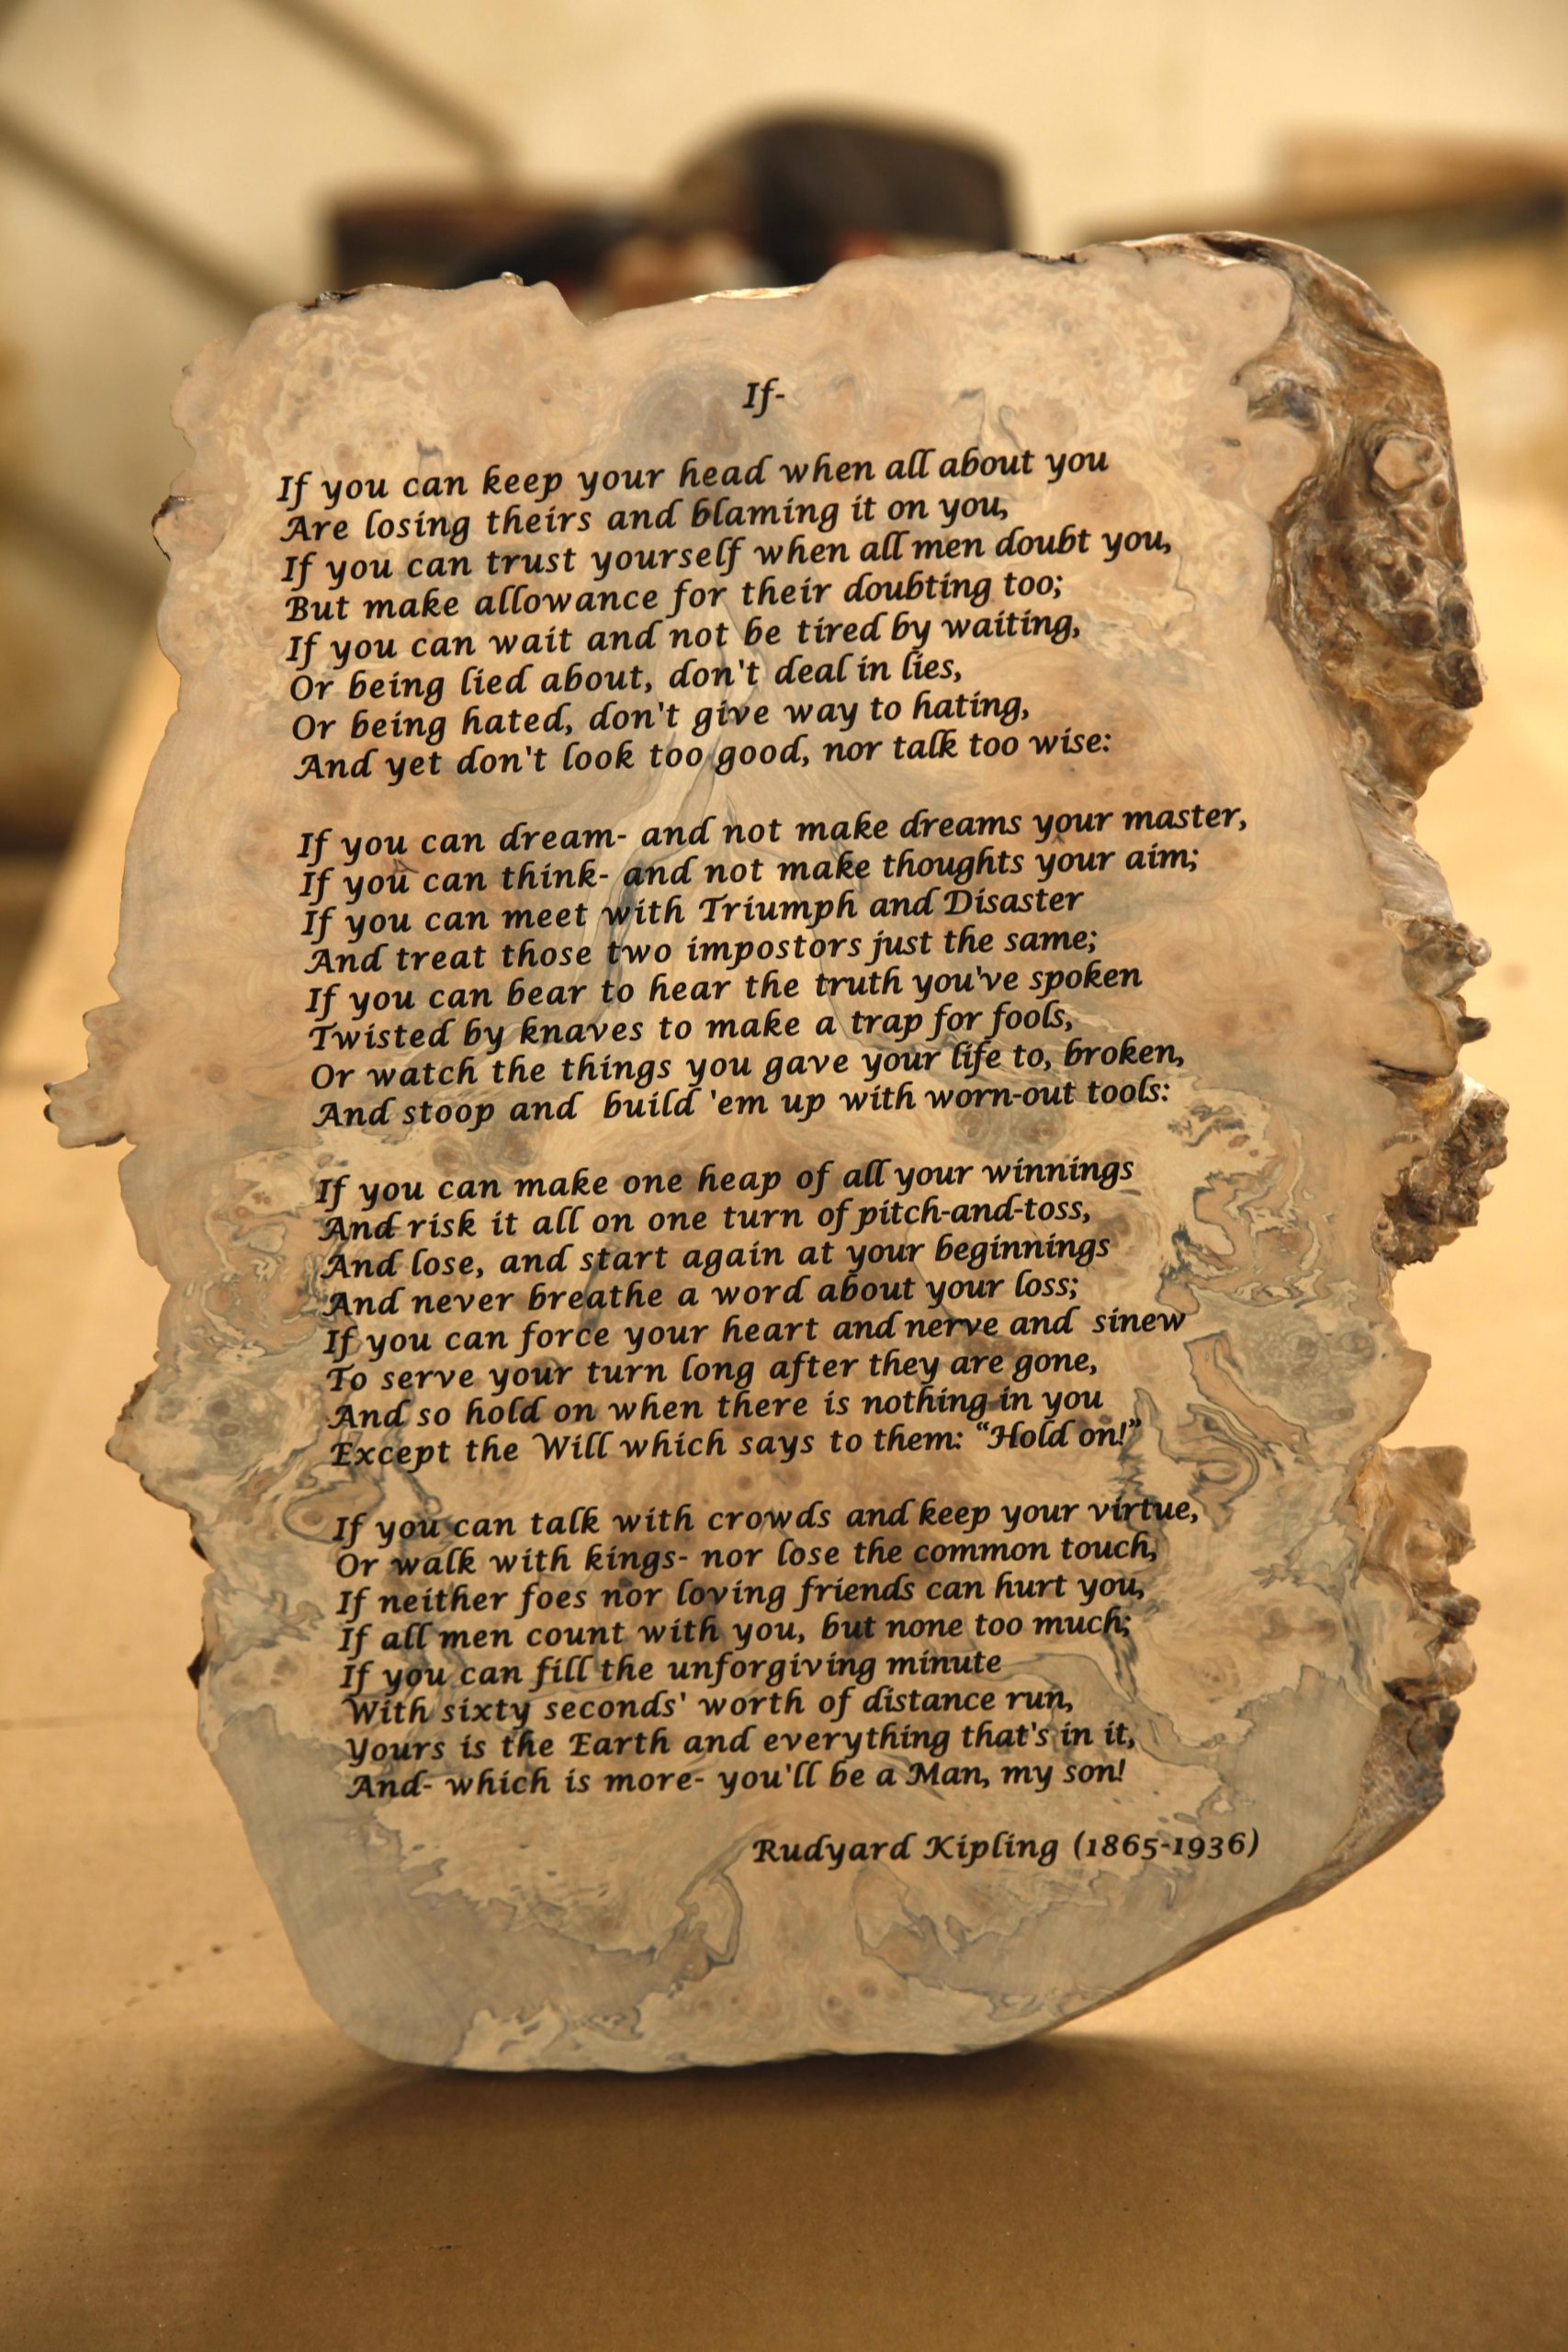 If-
If you can keep your head when all about you
Are losing theirs and blaming it on you,
If you can trust yourself when all men doubt you,
But make allowance for their doubting too;
If you can wait and not be tired by waiting,
Or being lied about, don't deal in lies,
Or being hated, don't give way to hating,
And yet don't look too good, nor talk too wise:
If you can dream- and not make dreams your master,
If you can think- and not make thoughts your aim;
If you can meet with Triumph and Disaster
And treat those two impostors just the same;
If you can bear to hear the truth you've spoken
Twisted by knaves to make a trap for fools,
Or watch the things you gave your life to, broken,
And stoop and build 'em up with worn-out tools:
If you can make one heap of all your winnings
And risk it all on one turn of pitch-and-toss,
And lose, and start again at your beginnings
And never breathe a word about your loss;
If you can force your heart and nerve and sinew
To serve your turn long after they are gone,
And so hold on when there is nothing in you
Except the Will which says to them: “Hold on!”
If you can talk with crowds and keep your virtue,
Or walk with kings- nor lose the common touch,
If neither foes nor loving friends can hurt you,
If all men count with you, but none too much;
If you can fill the unforgiving minute
With sixty seconds' worth of distance run,
Yours is the Earth and everything that's in it,
And- which is more- you'll be a Man, my son!
Rudyard Kipling (1865-1936)